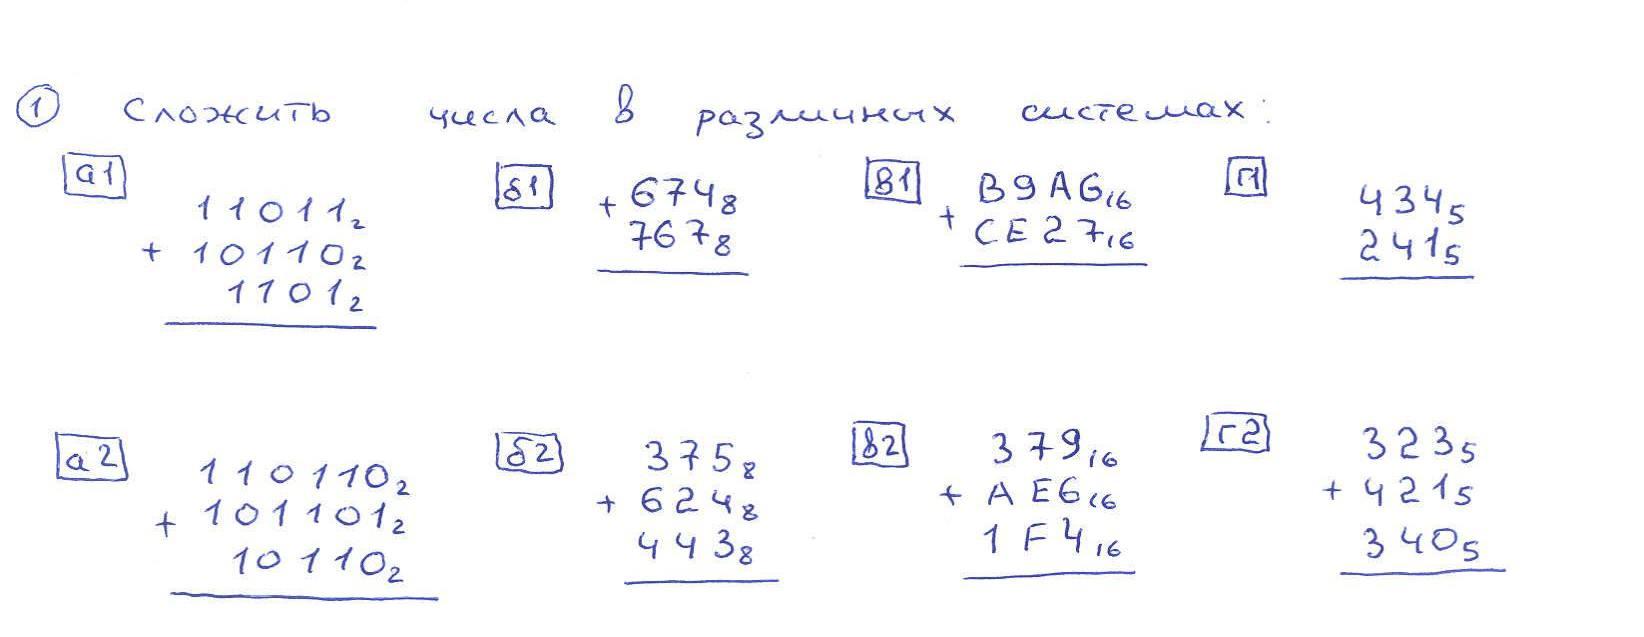 ① Сложить числа в различных системах:
а1
11011₂
+ 10110₂
1101₂
б1
+ 674₈
767₈
в1
B9A6₁₆
+ CE27₁₆
г1
434₅
241₅
а2
110110₂
+ 101101₂
10110₂
б2
375₈
+ 624₈
443₈
в2
379₁₆
+ AE6₁₆
1F4₁₆
г2
323₅
+ 421₅
340₅